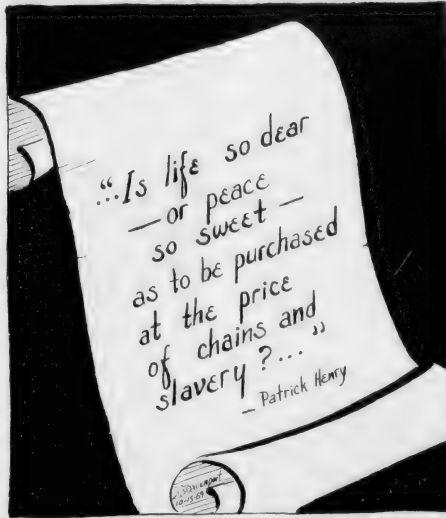 “...Is life so dear
— or peace
so sweet —
as to be purchased
at the price
of chains and
slavery ?... ”
— Patrick Henry
10-15-69